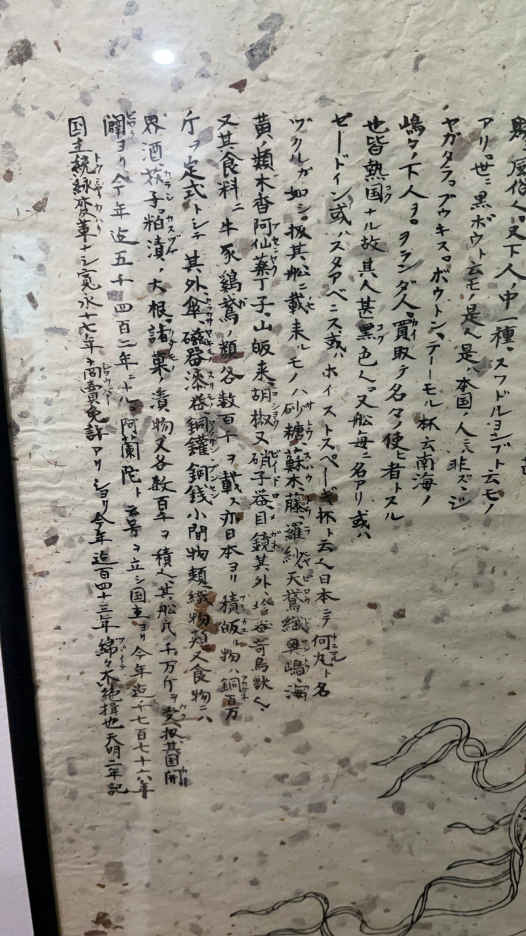 風俗ヘ又下人ノ中一種スワドルヨシブト云モノ
アリ世ニ黒ボウト云モノ是ヘ是ハ本国ノ人ニ非ズジ
ヤガタラブウキスボウトンテーモル杯云南海ノ
嶋々ノ下人ヲヲランダ人買取テ名々ノ使ヒ者トスル
也皆熱国ナル故其人甚黒色ヘ又舩毎ニ名アリ或ハ
ゼードイン或ハスタアベニス或ハホイストスペーキ杯ト云ヘ日本ニテ何丸ト名
ヅクルガ如シ扨其舩ニ載来ルモノハ砂糖蘇木藤羅紗天鵞絨奥嶋海
黄ノ類木香阿仙薬丁子山皈来胡椒又硝子器目鏡其外奇鳥獣ヘ
又其食料ニ牛豕鶏鵞ノ類各数百ヲ載ス亦日本ヨリ積皈ル物ハ銅百万
斤ヲ定式トシテ其外傘磁器漆器銅鑵銅銭小間物類織物類又食物ニハ
界酒核子粕漬ノ大根諸菓ノ漬物又各数百ヲ積ヘ其舩凡千万斤ヲ受扨其国開
闢ヨリ今年迄五千四百二年ト阿蘭陀ト云号ヲ立シ国主ヨリ今年迄千七百七十六年
国主統綿変革ナシ寛永十七年商賣免許アリショリ今年迄百四十三年綿々不絶楫也天明二年記